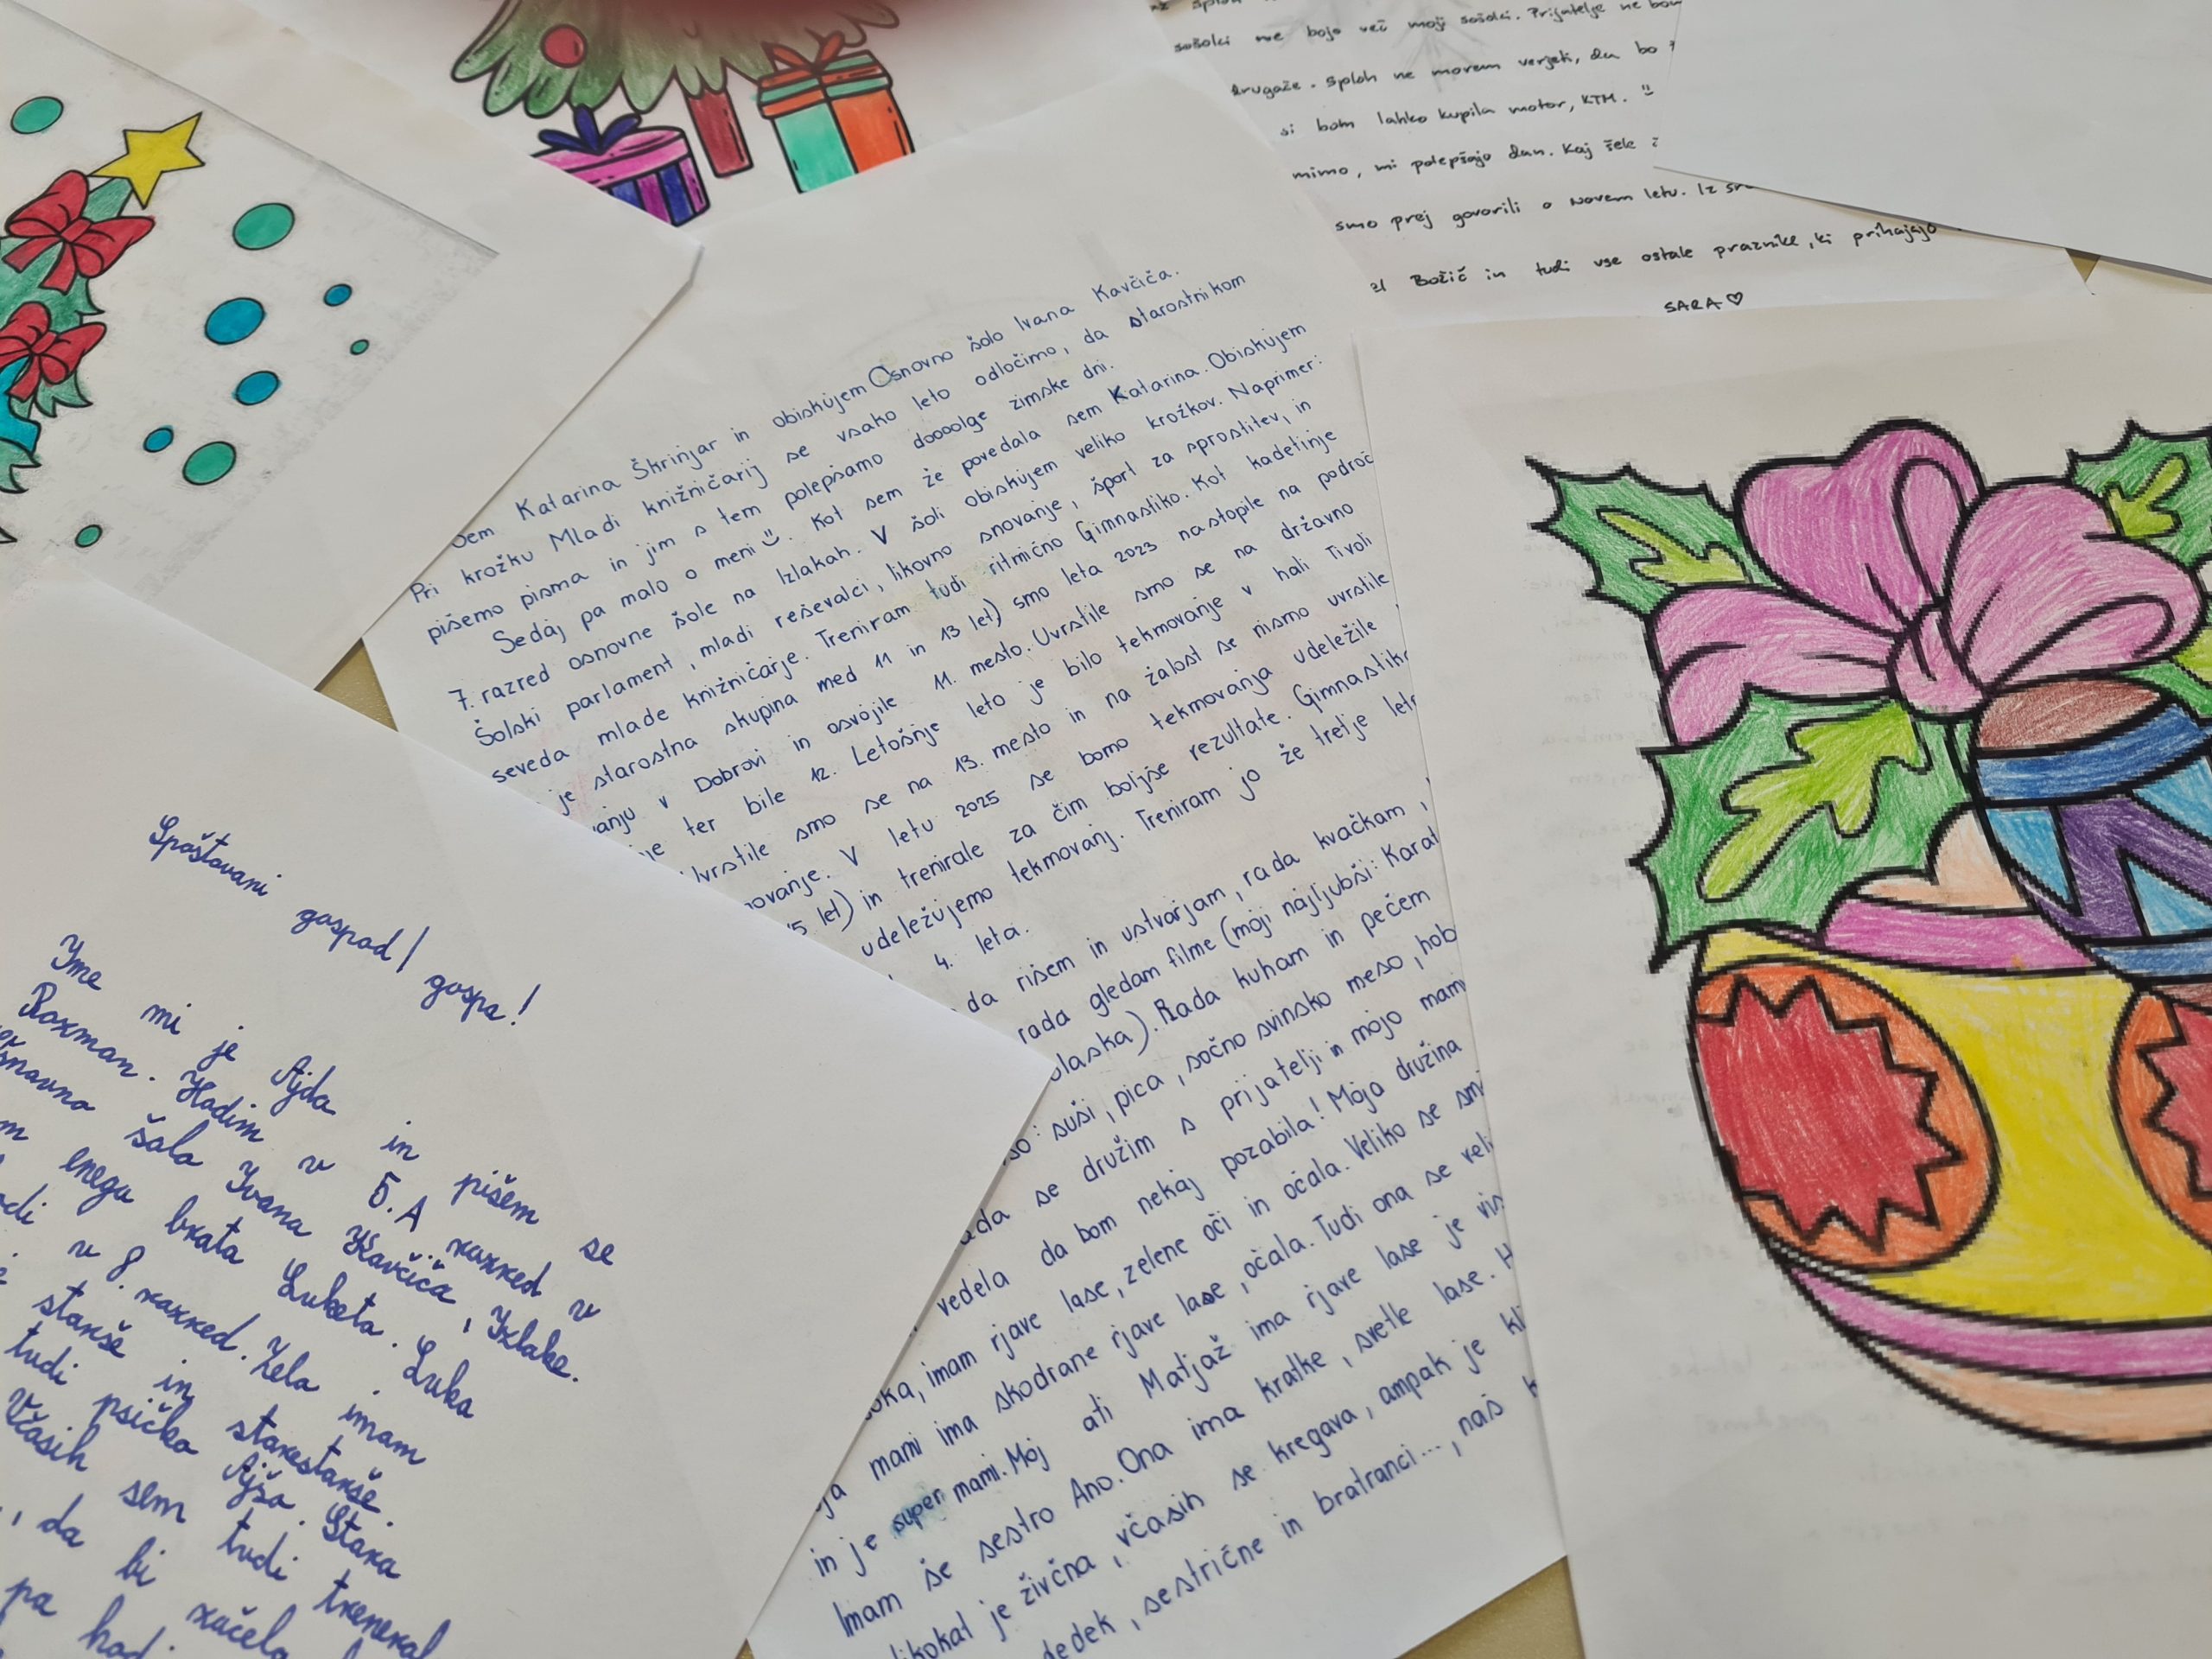 sošolci ne bojo več moji sošolci. Prijatelje ne bom
drugače. Sploh ne morem verjeti, da bo
si bom lahko kupila motor, KTM.
mimo, mi polepšajo dan. Kaj šele
smo prej govorili o Novem letu. Iz
Božič in tudi vse ostale praznike, ki prihajajo
SARA♡
Sem Katarina Škrinjar in obiskujem Osnovno šolo Ivana Kavčiča.
Pri krožku Mladi knižničarij se vsako leto odločimo, da starostnikom
pišemo pisma in jim s tem polepšamo doooolge zimske dni.
Sedaj pa malo o meni. Kot sem že povedala sem Katarina. Obiskujem
7. razred osnovne šole na Izlakah. V šoli obiskujem veliko krožkov. Naprimer:
Šolski parlament, mladi reševalci, likovno snovanje, šport za sprostitev, in
seveda mlade knižničarje. Treniram tudi ritmično Gimnastiko. Kot kadetinje
je starostna skupina med 11 in 13 let) smo leta 2023 nastopile na područ
anju v Dobrovi in osvojile 11. mesto. Uvrstile smo se na državno
je ter bile 12. Letošnje leto je bilo tekmovanje v hali Tivoli
Uvrstile smo se na 13. mesto in na žalost se nismo uvrstile
ovanje. V letu 2025 se bomo tekmovanja udeležile
15 let) in trenirale za čim boljše rezultate. Gimnastik
udeležujemo tekmovanj. Treniram jo že tretje leto
4. leta.
da rišem in ustvarjam, rada kvačkam,
rada gledam filme (moji najljubši: Karat
olaska). Rada kuham in pečem
so: suši, pica, sočno svinsko meso, hob
ada se družim s prijatelji in mojo mami
vedela da bom nekaj pozabila! Moja družina
oka, imam rjave lase, zelene oči in očala. Veliko se smi
ja mami ima skodrane rjave lase, očala. Tudi ona se veli
in je super mami. Moj ati Matjaž ima rjave lase je vis
Imam še sestro Ano. Ona ima kratke, svetle lase. H
likokat je živčna, včasih se kregava, ampak je kl
dedek, sestrične in bratranci..., nas k
Spoštovani gospod/gospa!
Ime mi je Ajda in pišem se
Roxman. Hodim v 5.A razred v
snovno šolo Ivana Kavčiča, Izlake.
m enega brata Lukata. Luka
odi v 8. razred. Zelo imam
starše in starestarše.
tudi psičko Ajšo. Stara
Včasih sem tudi treneral
, da bi začela
pa hodi